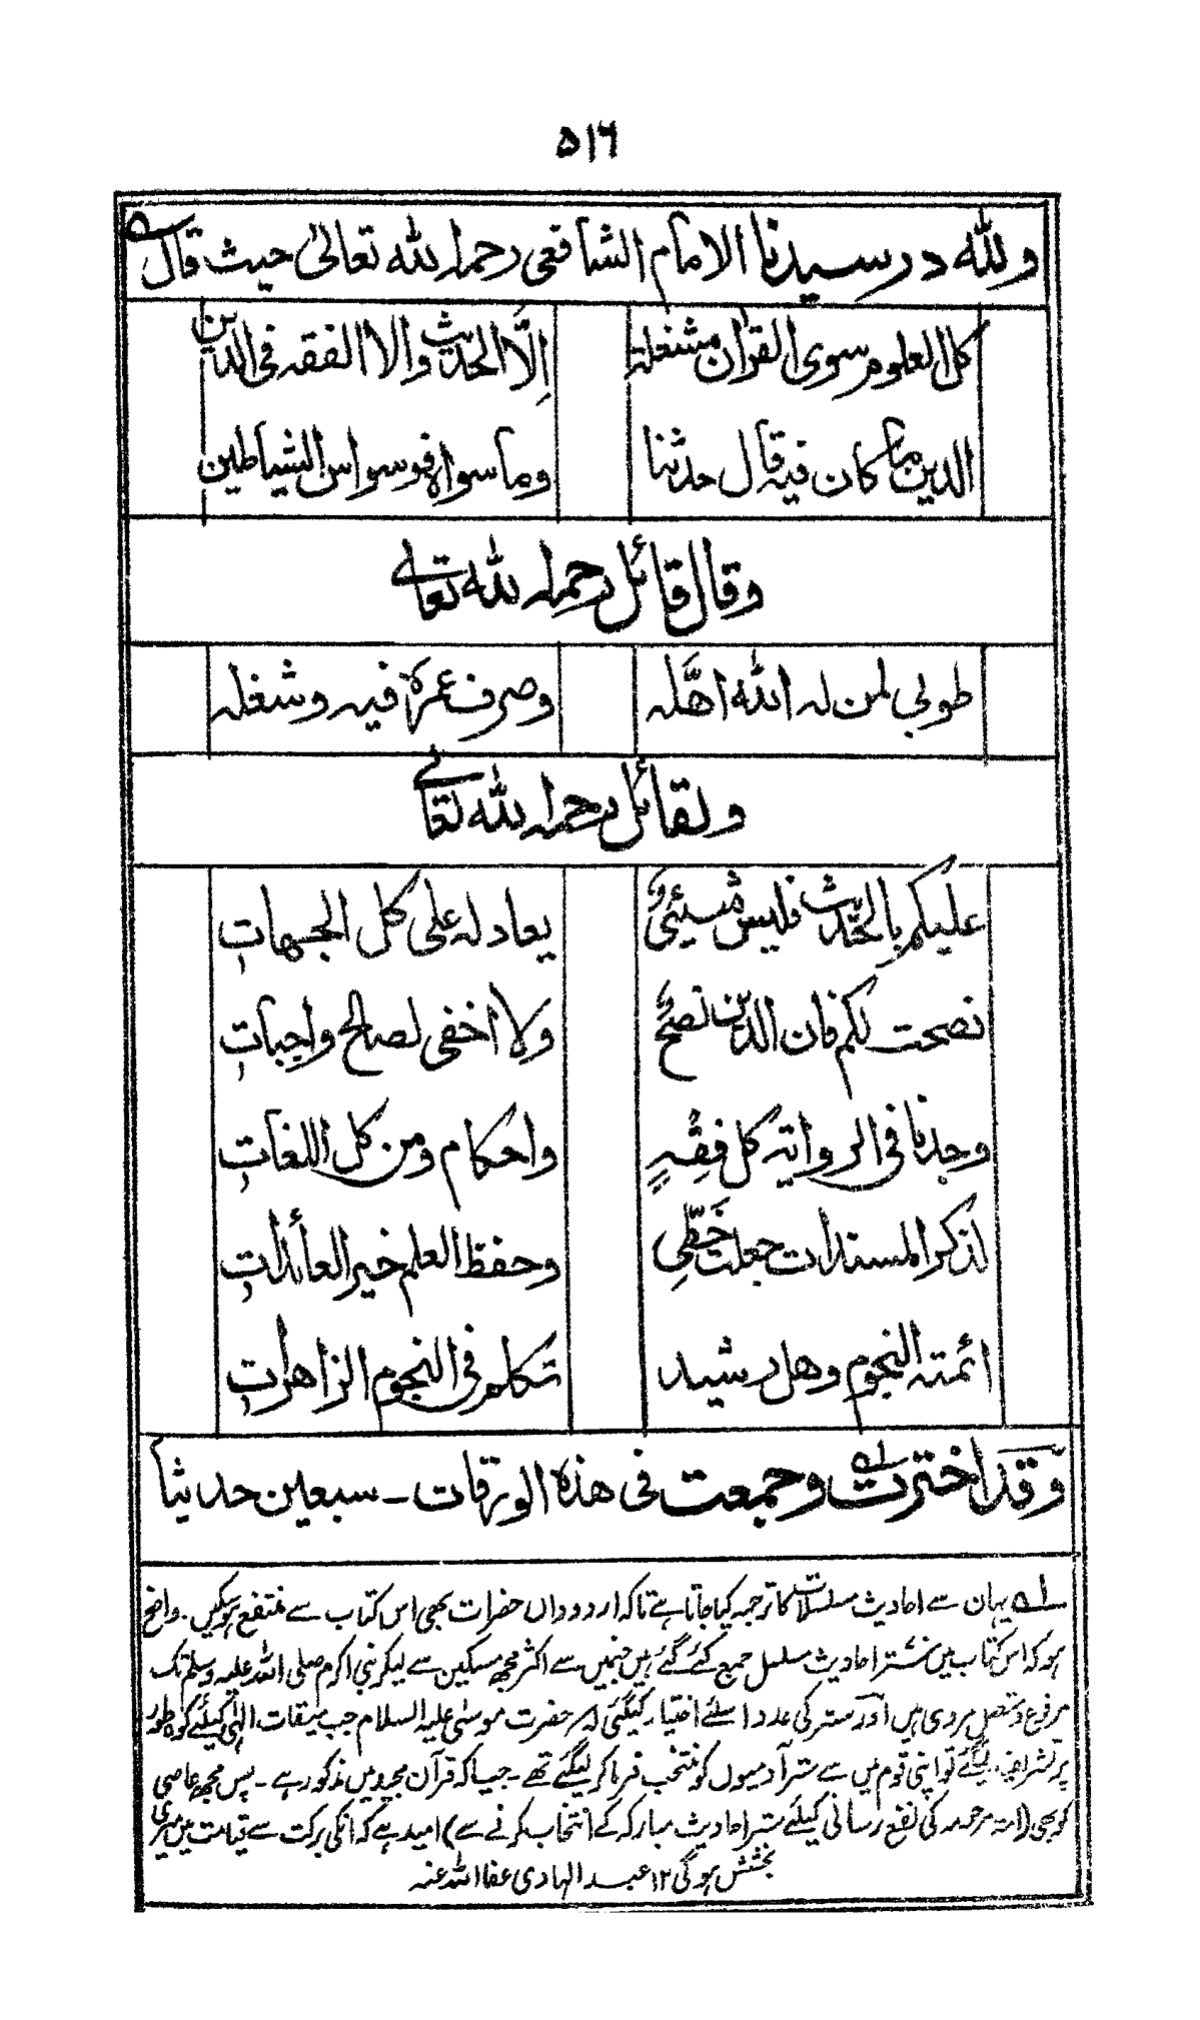 ۵۱۶
وللّٰه در سیدنا الامام الشافعی رحمه اللّٰه تعالیٰ حیث قال
کل العلوم سوی القراٰن مشغلة
اِلَّا الحدیث والا الفقه فی الدین
الدین ما کان فیه قال حدثنا
وما سواه فوسواس الشیاطین
وقال قائل رحمه اللّٰه تعالے
طوبی لمن له اللّٰه اهَّله
وصرف عمره فیه وشغله
ولقائل رحمه اللّٰه تعالے
علیکم بالحَدیث فلیس شیئیٌ
یعادله علی کل الجهاتِ
نصحت لکم فان الدین نصحٌ
ولا اخفی لصالح واجباتِ
وجدنا فی الروایة کل فِقهٍ
واحکام ومن کل اللغاتِ
لذکر المسندات جعلت حَظّیِ
وحفظ العلم خیر العائداتِ
ائمته النجوم وهل رشید
تکلم فی النجوم الزاهراتِ
وَقد اخترت لہ وجمعت فی هذه الورقات ـ سبعین حدیثا
لہ یہان سے احادیث مسلسلات کا ترجمہ کیا جاتا ہے تاکہ اردو داں حضرات بھی اس کتاب سے منتفع ہو سکیں۔ واضح
ہو کہ اس کتاب میں ستر احادیثِ مسلسل جمع کئے گئے ہیں جنمیں سے اکثر مجھ مسکین سے لیکر نبی اکرم صلی اللہ علیہ وسلم تک
مرفوع و متصل مروی ہیں اور ستر کی عدد اسلئے اختیار کیگئی کہ حضرت موسیٰ علیہ السلام جب میقات الٰہی کیلئے کوہ طور
پر تشریف لیگئے تو اپنی قوم میں سے ستر آدمیوں کو منتخب فرما کر لیگئے تھے ۔ جیسا کہ قرآن مجید میں مذکور ہے ۔ پس مجھ عاصی
کو بھی (امۃ مرحومہ کی نفع رسانی کیلئے ستر احادیث مبارکہ کے انتخاب کرنے سے) امید ہے کہ انکی برکت سے قیامت میں میری
بخشش ہو گی ۱۲ عبد الہادی عفا اللہ عنہ